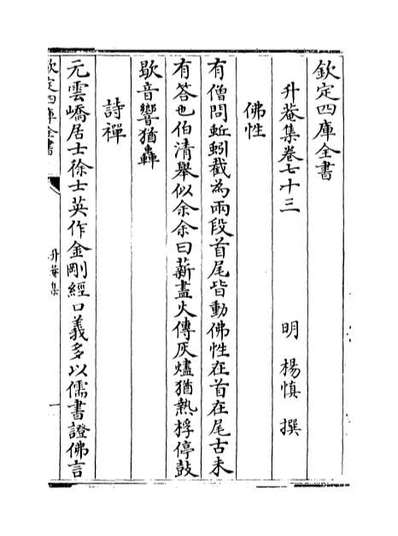 欽定四庫全書
升菴集卷七十三
明 楊慎 撰
佛性
有僧問蚯蚓截為兩段首尾皆動佛性在首在尾古未
有答也伯清舉似余余曰薪盡火傳灰燼猶熱桴停鼓
歇音響猶轟
詩禪
元雲嶠居士徐士英作金剛經口義多以儒書證佛言
欽定四庫全書
升菴集
一